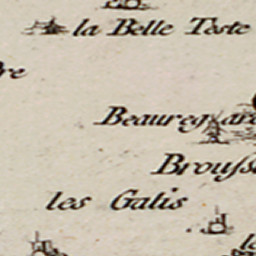 la Belle Teste
re
Beauregard
Brouss
les Galis
la